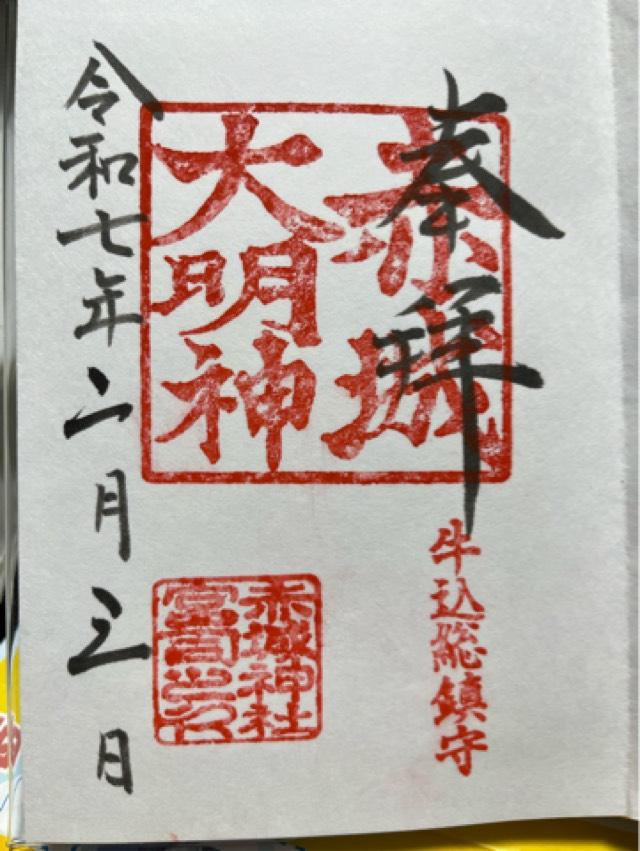 奉拝
赤城
大明神
牛込総鎮守
赤城神社
宮司之印
令和七年二月三日